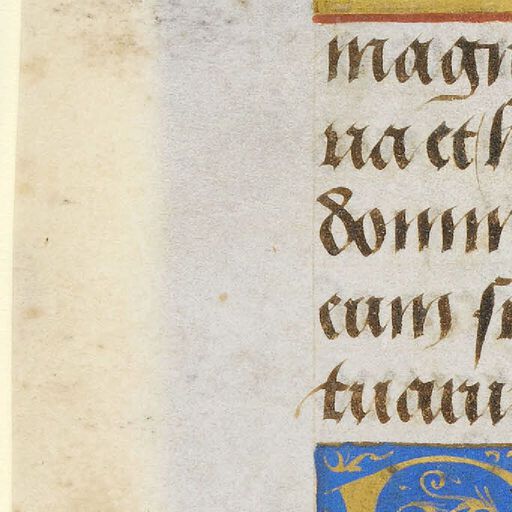 magn
ua et h
domin
eum se
tuaru